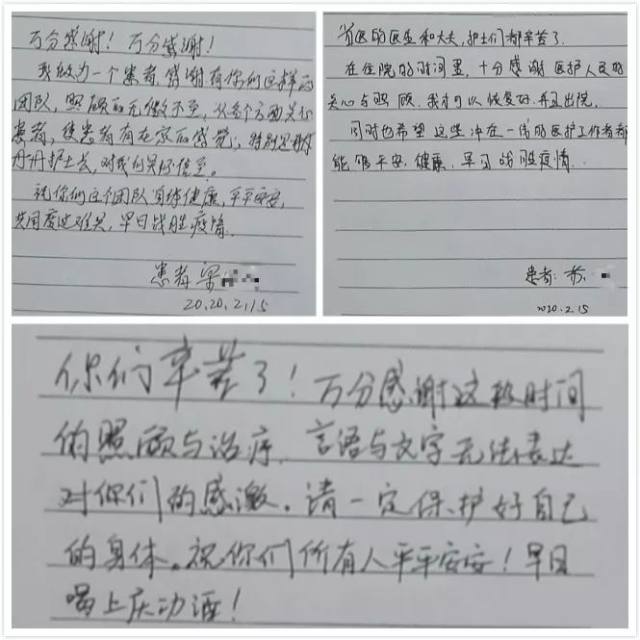 万分感谢！万分感谢！
我做为一个患者，感谢有你们这样的
团队，照顾的无微不至，从各个方面关心
患者，使患者有在家的感觉，特别是
丹丹护士长，对我们关怀倍至。
祝你们这个团队身体健康，平平安安，
共同度过难关，早日战胜疫情
患者 梁
20.20.2.15
省医的医生和大夫，护士们都辛苦了。
在住院的时间里，十分感谢医护人员的
关心与照顾，我才可以恢复好，并且出院。
同时也希望这些冲在一线的医护工作者都
能够平安，健康，早日战胜疫情。
患者：
2020.2.15
你们辛苦了！万分感谢这段时间
的照顾与治疗，言语与文字无法表达
对你们的感激。请一定保护好自己
的身体。祝你们所有人平平安安！早日
喝上庆功酒！